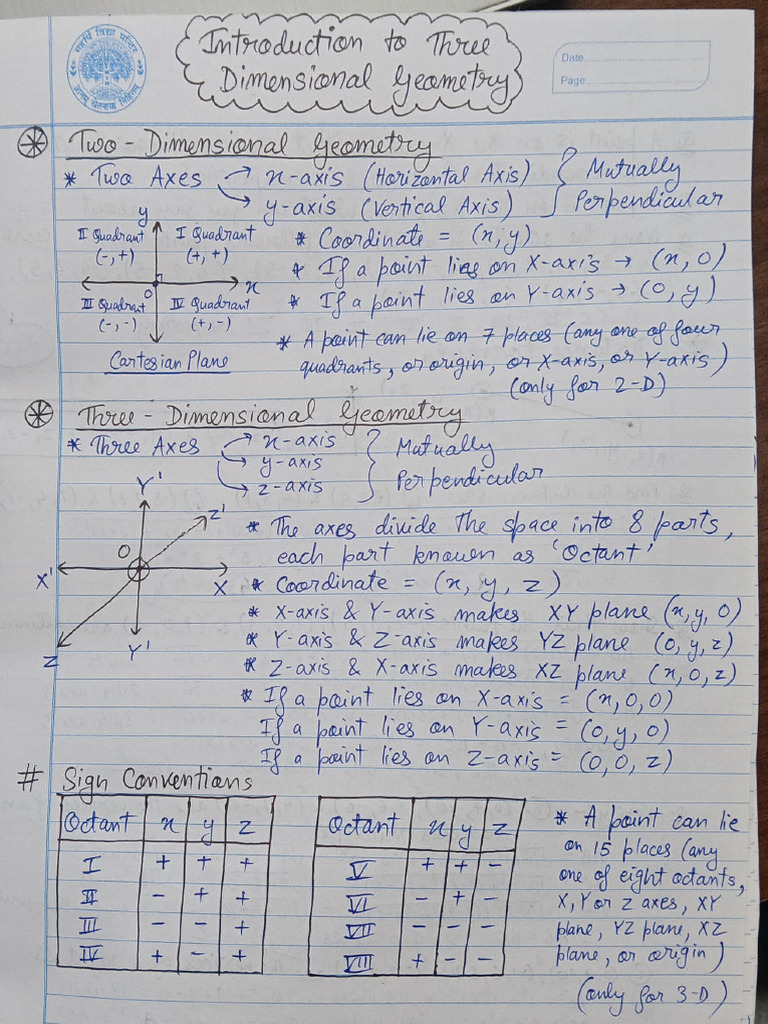 महर्षि विद्या मन्दिर
Introduction to Three
Dimensional Geometry
Date
Page
Two - Dimensional Geometry
* Two Axes → x-axis (Horizontal Axis)
→ y-axis (Vertical Axis)
} Mutually
Perpendicular
y
II Quadrant
(-, +)
I Quadrant
(+, +)
O
x
III Quadrant
(-, -)
IV Quadrant
(+, -)
Cartesian Plane
* Coordinate = (x, y)
* If a point lies on X-axis → (x, 0)
* If a point lies on Y-axis → (0, y)
* A point can lie on 7 places (any one of four
quadrants, or origin, or X-axis, or Y-axis)
(only for 2-D)
Three - Dimensional Geometry
* Three Axes → x-axis
→ y-axis
→ z-axis
} Mutually
Perpendicular
Y'
Z'
O
X'
X
Z
Y'
* The axes divide the space into 8 parts,
each part known as 'Octant'
* Coordinate = (x, y, z)
* X-axis & Y-axis makes XY plane (x, y, 0)
* Y-axis & Z-axis makes YZ plane (0, y, z)
* Z-axis & X-axis makes XZ plane (x, 0, z)
* If a point lies on X-axis = (x, 0, 0)
If a point lies on Y-axis = (0, y, 0)
If a point lies on Z-axis = (0, 0, z)
# Sign Conventions
Octant x y z
I + + +
II - + +
III - - +
IV + - +
Octant x y z
V + + -
VI - + -
VII - - -
VIII + - -
* A point can lie
on 15 places (any
one of eight octants,
X, Y or Z axes, XY
plane, YZ plane, XZ
plane, or origin)
(only for 3-D)